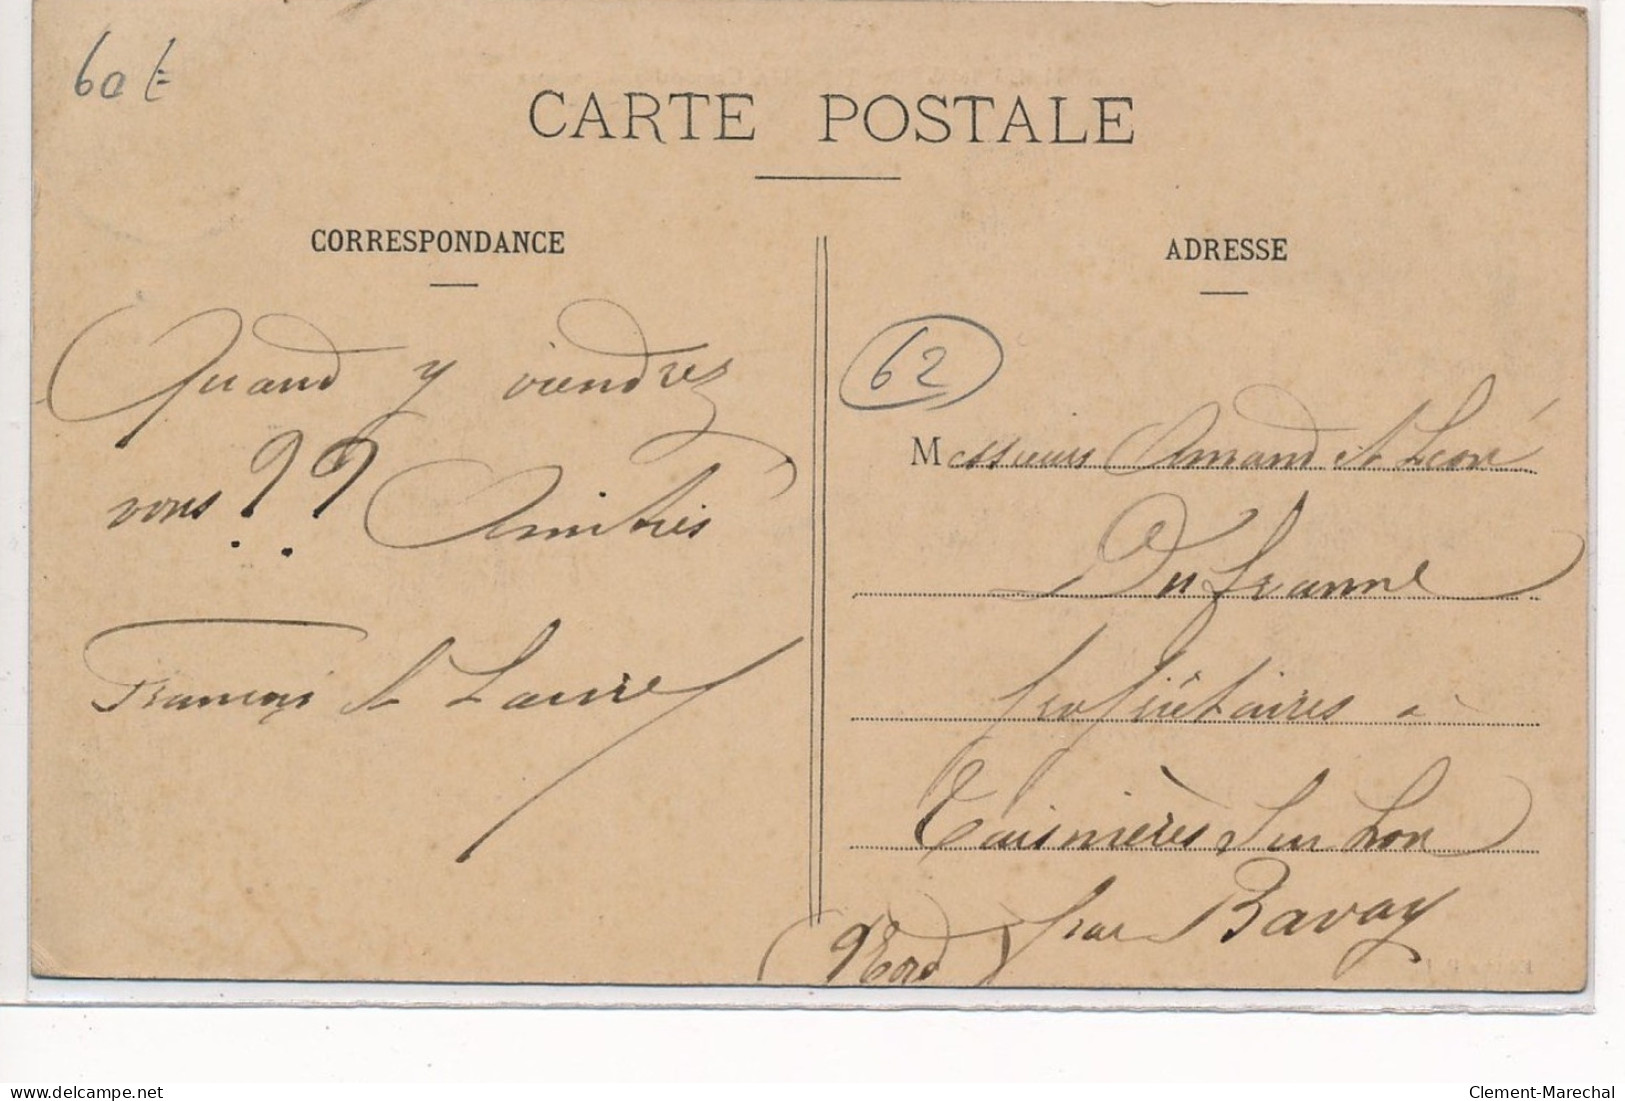 60 €
CARTE POSTALE
CORRESPONDANCE
Quand y viendrez
vous ? ? Amitiés
François &
ADRESSE
62
Messieurs Amand & Léon
Dufranne
propriétaires à
Taisnières Sur hon
par Bavay
(Nord)
Clement-Marechal